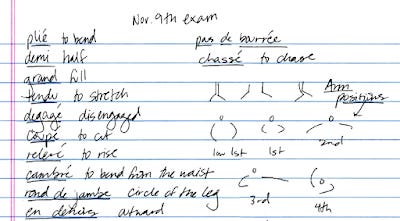 Nov. 9th exam
plié to bend
pas de bourrée
demi half
chassé to chase
grand full
tendu to stretch
Arm positions
degagé disengaged
coupé to cut
low 1st 1st 2nd
relevé to rise
cambré to bend from the waist
rond de jambe circle of the leg
3rd 4th
en dehors outward